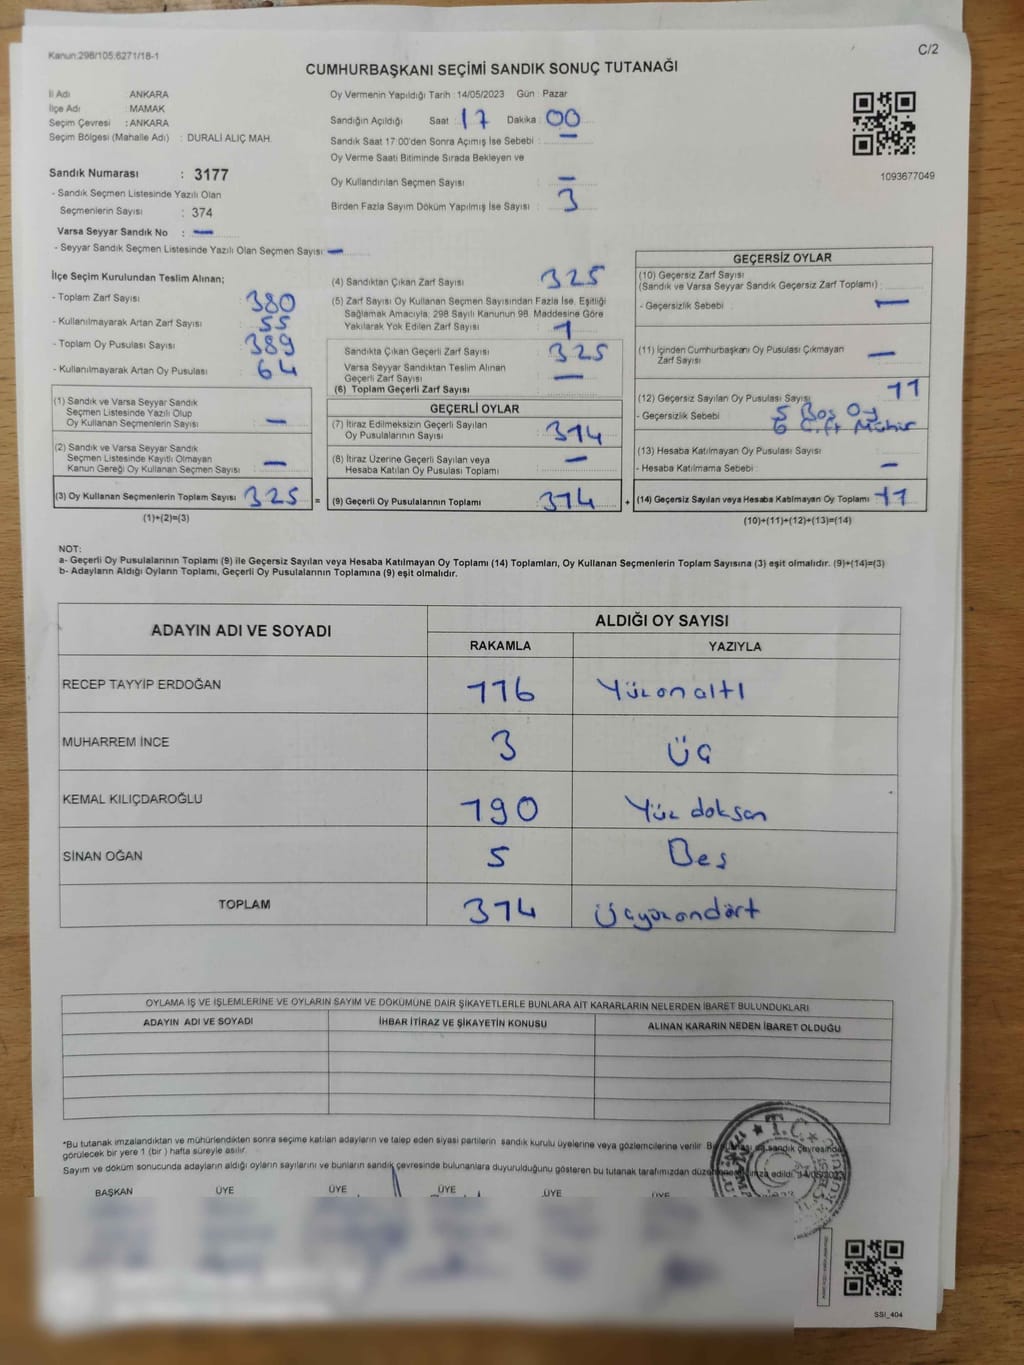 Kanun:298/105;6271/18-1
C/2
CUMHURBAŞKANI SEÇİMİ SANDIK SONUÇ TUTANAĞI
İl Adı ANKARA
İlçe Adı : MAMAK
Seçim Çevresi : ANKARA
Seçim Bölgesi (Mahalle Adı) : DURALİ ALIÇ MAH.
Oy Vermenin Yapıldığı Tarih : 14/05/2023 Gün : Pazar
Sandığın Açıldığı Saat : 17 Dakika : 00
Sandık Saat 17:00'den Sonra Açımış İse Sebebi : —
Oy Verme Saati Bitiminde Sırada Bekleyen ve
Oy Kullandırılan Seçmen Sayısı : —
Birden Fazla Sayım Döküm Yapılmış İse Sayısı : 3
1093677049
Sandık Numarası : 3177
- Sandık Seçmen Listesinde Yazılı Olan
Seçmenlerin Sayısı : 374
Varsa Seyyar Sandık No : —
- Seyyar Sandık Seçmen Listesinde Yazılı Olan Seçmen Sayısı : —
İlçe Seçim Kurulundan Teslim Alınan;
- Toplam Zarf Sayısı : 380
- Kullanılmayarak Artan Zarf Sayısı : 55
- Toplam Oy Pusulası Sayısı : 389
- Kullanılmayarak Artan Oy Pusulası : 64
(1) Sandık ve Varsa Seyyar Sandık
Seçmen Listesinde Yazılı Olup
Oy Kullanan Seçmenlerin Sayısı : —
(2) Sandık ve Varsa Seyyar Sandık
Seçmen Listesinde Kayıtlı Olmayan
Kanun Gereği Oy Kullanan Seçmen Sayısı : —
(3) Oy Kullanan Seçmenlerin Toplam Sayısı : 325 =
(1)+(2)=(3)
(4) Sandıktan Çıkan Zarf Sayısı : 325
(5) Zarf Sayısı Oy Kullanan Seçmen Sayısından Fazla İse, Eşitliği
Sağlamak Amacıyla; 298 Sayılı Kanunun 98. Maddesine Göre
Yakılarak Yok Edilen Zarf Sayısı :
Sandıkta Çıkan Geçerli Zarf Sayısı : 325
Varsa Seyyar Sandıktan Teslim Alınan
Geçerli Zarf Sayısı : —
(6) Toplam Geçerli Zarf Sayısı
GEÇERLİ OYLAR
(7) İtiraz Edilmeksizin Geçerli Sayılan
Oy Pusulalarının Sayısı : 314
(8) İtiraz Üzerine Geçerli Sayılan veya
Hesaba Katılan Oy Pusulası Toplamı : —
(9) Geçerli Oy Pusulalarının Toplamı : 314 +
GEÇERSİZ OYLAR
(10) Geçersiz Zarf Sayısı
(Sandık ve Varsa Seyyar Sandık Geçersiz Zarf Toplamı) :
- Geçersizlik Sebebi : —
(11) İçinden Cumhurbaşkanı Oy Pusulası Çıkmayan
Zarf Sayısı : —
(12) Geçersiz Sayılan Oy Pusulası Sayısı 11
- Geçersizlik Sebebi : 5 Boş Oy
6 Çift Mühür
(13) Hesaba Katılmayan Oy Pusulası Sayısı :
- Hesaba Katılmama Sebebi : —
(14) Geçersiz Sayılan veya Hesaba Katılmayan Oy Toplamı : 11
(10)+(11)+(12)+(13)=(14)
NOT:
a- Geçerli Oy Pusulalarının Toplamı (9) ile Geçersiz Sayılan veya Hesaba Katılmayan Oy Toplamı (14) Toplamları, Oy Kullanan Seçmenlerin Toplam Sayısına (3) eşit olmalıdır. (9)+(14)=(3)
b- Adayların Aldığı Oyların Toplamı, Geçerli Oy Pusulalarının Toplamına (9) eşit olmalıdır.
ADAYIN ADI VE SOYADI
ALDIĞI OY SAYISI
RAKAMLA YAZIYLA
RECEP TAYYİP ERDOĞAN 116 Yüzonaltı
MUHARREM İNCE 3 Üç
KEMAL KILIÇDAROĞLU 190 Yüz doksan
SİNAN OĞAN 5 Beş
TOPLAM 314 Üçyüzondört
OYLAMA İŞ VE İŞLEMLERİNE VE OYLARIN SAYIM VE DÖKÜMÜNE DAİR ŞİKAYETLERLE BUNLARA AİT KARARLARIN NELERDEN İBARET BULUNDUKLARI
ADAYIN ADI VE SOYADI İHBAR İTİRAZ VE ŞİKAYETİN KONUSU ALINAN KARARIN NEDEN İBARET OLDUĞU
*Bu tutanak imzalandıktan ve mühürlendikten sonra seçime katılan adayların ve talep eden siyasi partilerin sandık kurulu üyelerine veya gözlemcilerine verilir. sandık çevresinde
görülecek bir yere 1 (bir ) hafta süreyle asılır.
Sayım ve döküm sonucunda adayların aldığı oyların sayılarını ve bunların sandık çevresinde bulunanlara duyurulduğunu gösteren bu tutanak tarafımızdan imza edildi.
BAŞKAN ÜYE ÜYE ÜYE ÜYE ÜYE
T.C.
SSI_404